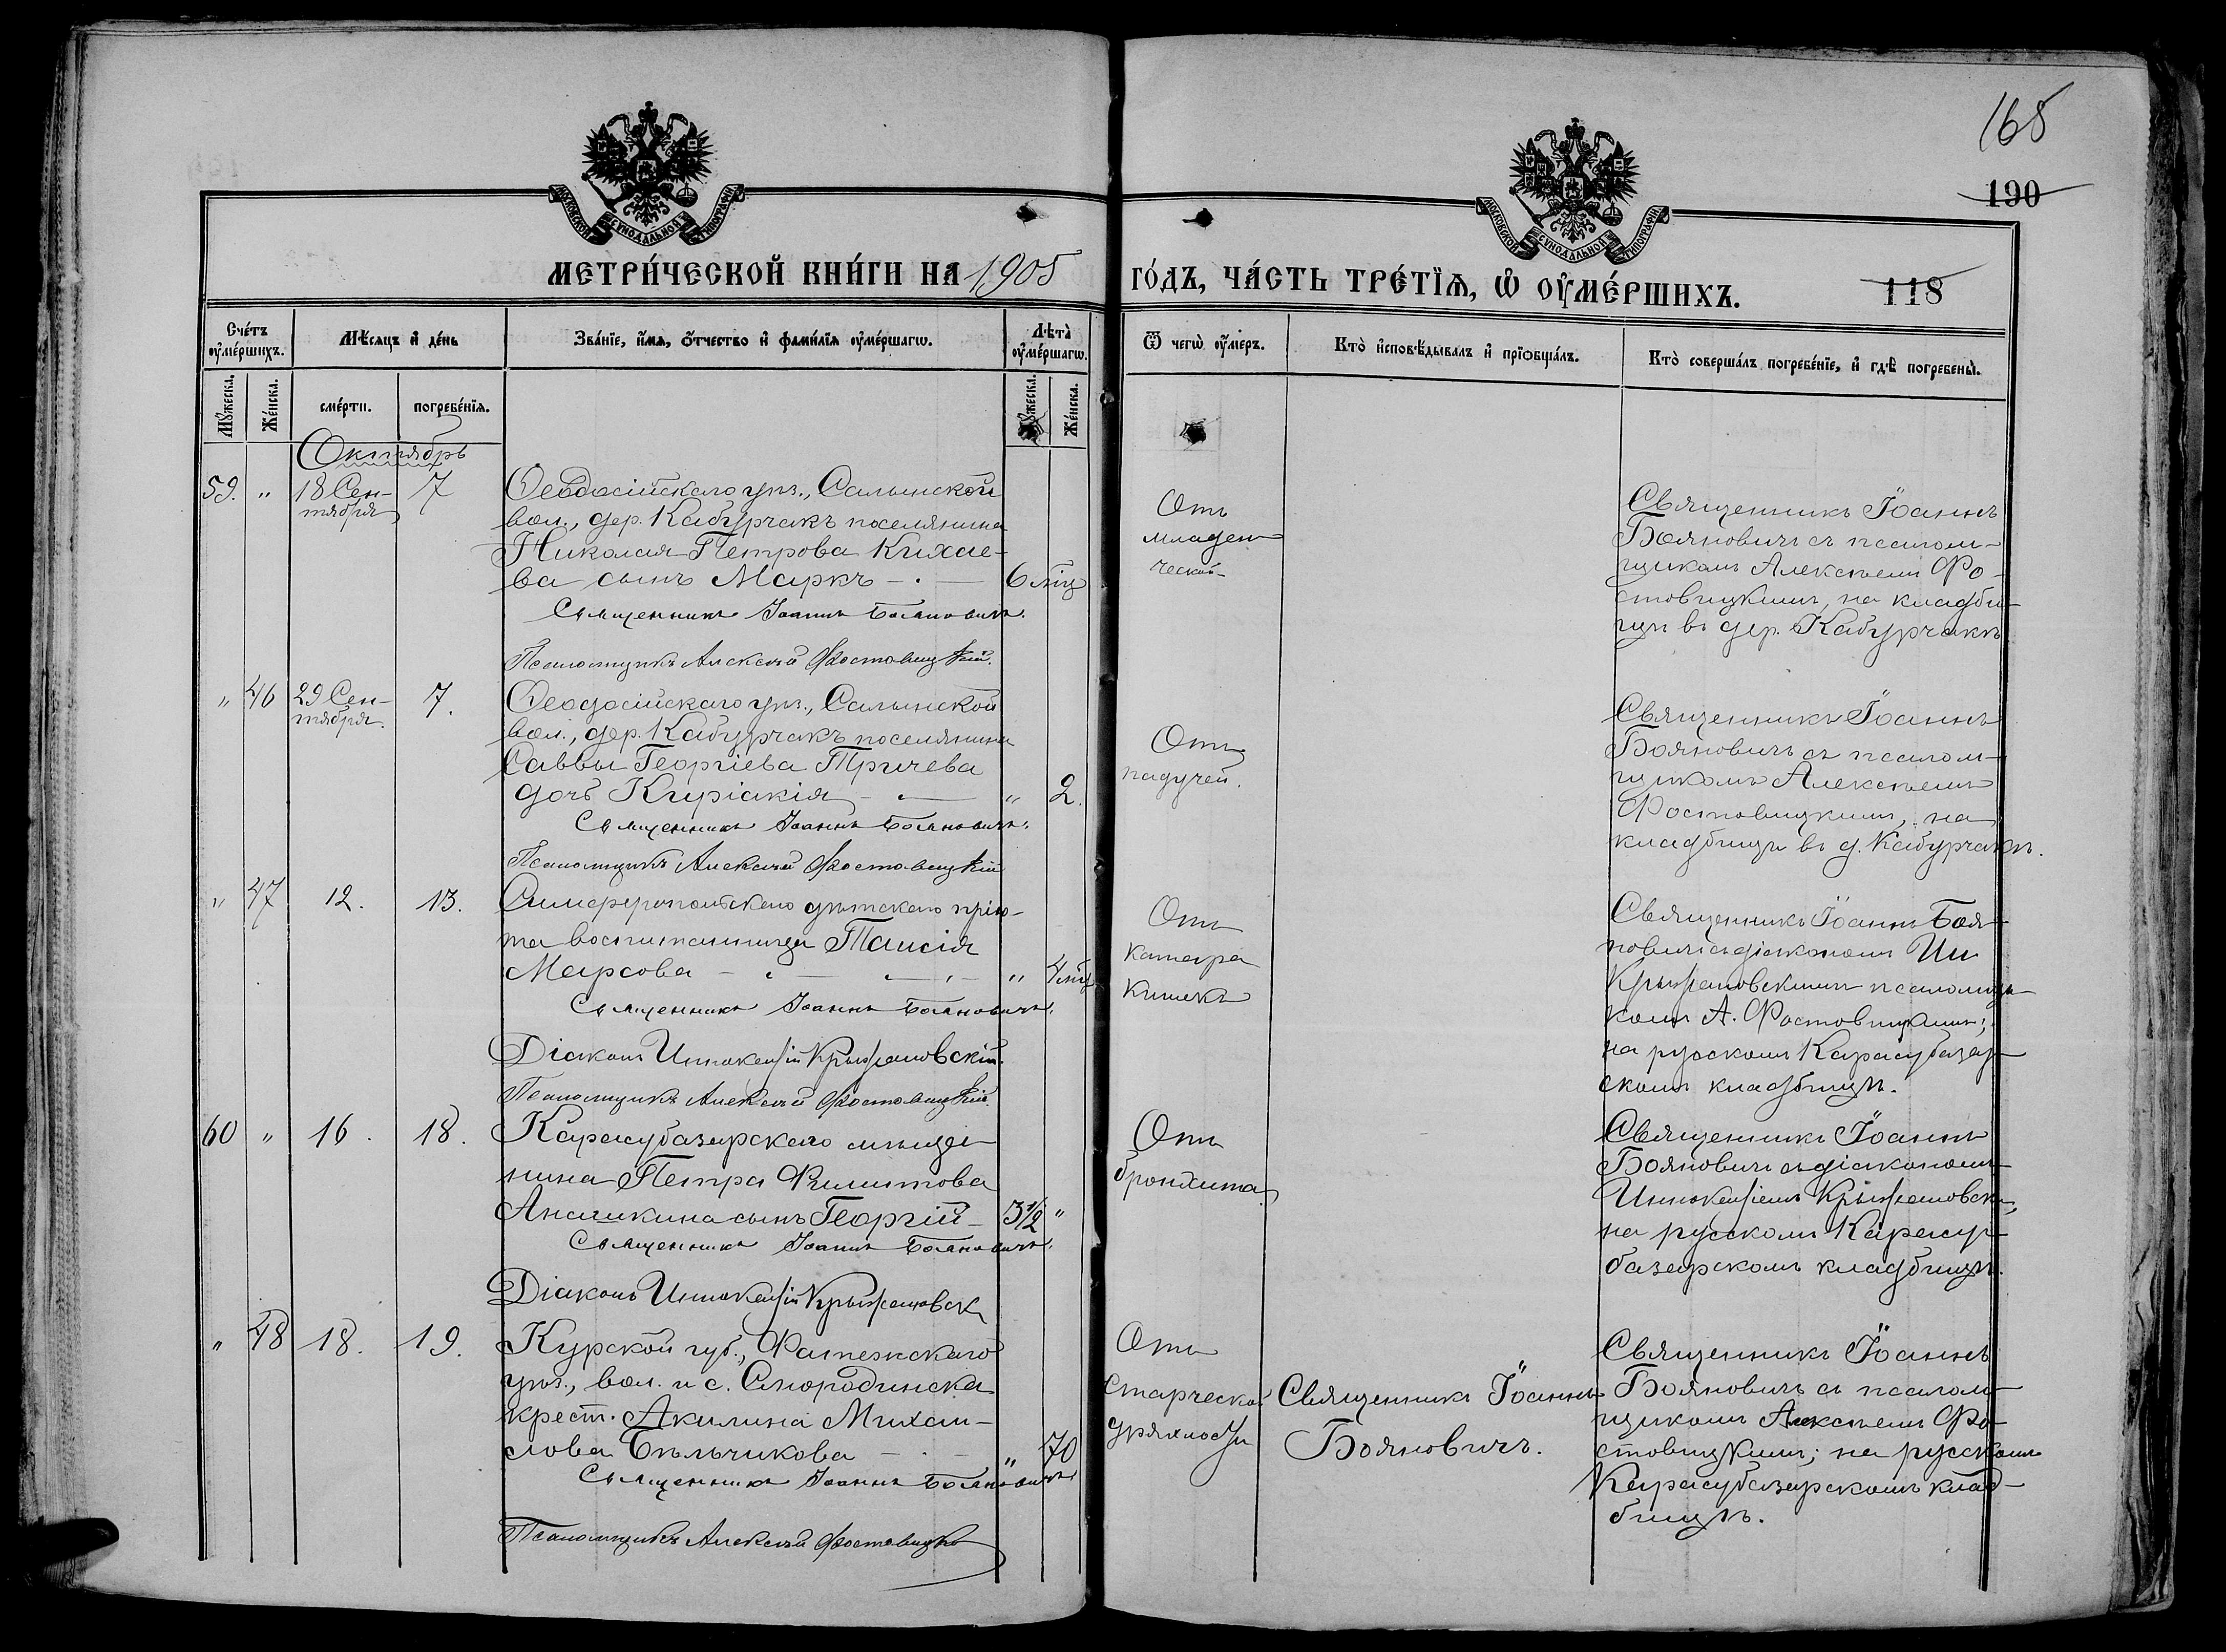 165
190
118
МОСКОВСКОЙ СѴНОДАЛЬНОЙ ТИПОГРАФІИ
МОСКОВСКОЙ СѴНОДАЛЬНОЙ ТИПОГРАФІИ
МЕТРИ́ЧЕСКОЙ КНИ́ГИ НА 1905 ГО́ДЪ, ЧА́СТЬ ТРЕ́ТЇѦ, Ѡ҆ ОУ҆МЕ́РШИХЪ.
Сче́тъ оу҆ме́ршихъ.
Мѣ́сяцъ и҆ де́нь
Зва́нїе, и҆́мѧ, ѻ҆́тчество и҆ фами́лїѧ оу҆ме́ршагѡ.
Лѣ̀та оу҆ме́ршагѡ.
Ѿ чегѡ̀ оу҆́меръ.
Кто̀ и҆сповѣ́дывалъ и҆ прїѻбща́лъ.
Кто̀ соверша́лъ погребе́нїе, и҆ гдѣ̀ погребены̀.
Мꙋ́жеска.
Же́нска.
сме́рти.
погребе́нїѧ.
Мꙋ́жеска.
Же́нска.
Октябрь
59. " 18 Сен-
тября
7
Ѳеодосійскаго уѣз., Салынской
вол., дер. Кабурчакъ поселянина
Николая Петрова Кихае-
ва сынъ Маркъ — 6 мѣц
Священникъ Іоаннъ Бояновичъ.
Псаломщикъ Алексѣй Ростовицкій.
Отъ
младен
ческой
Священникъ Іоаннъ
Бояновичъ съ псалом-
щикомъ Алексѣемъ Ро-
стовицкимъ, на кладби-
щѣ въ дер. Кабурчакъ
" 46 29 Сен-
тября.
7.
Ѳеодосійскаго уѣз., Салынской
вол., дер. Кабурчакъ поселянина
Саввы Георгіева Тричева
дочь Киріакія — " 2.
Священникъ Іоаннъ Бояновичъ.
Псаломщикъ Алексѣй Ростовицкій
Отъ
падучей.
Священникъ Іоаннъ
Бояновичъ съ псалом-
щикомъ Алексѣемъ
Ростовицкимъ, на
кладбищѣ въ д. Кабурчакъ.
" 47 12. 13.
Симферопольскаго дѣтскаго прію-
та воспитанница Таисія
Марсова — " 4 мѣц
Священникъ Іоаннъ Бояновичъ.
Діаконъ Иннокентій Крыжановскій.
Псаломщикъ Алексѣй Ростовицкій.
Отъ
катара
кишекъ
Священникъ Іоаннъ Боя-
новичъ съ діакономъ Ин
Крыжановскимъ псаломщи-
комъ А. Ростовицкимъ;
на русскомъ Карасубазар-
скомъ кладбищѣ.
60 " 16. 18.
Карасубазарскаго мѣща-
нина Петра Филиппова
Ананикина сынъ Георгій — 3½ "
Священникъ Іоаннъ Бояновичъ.
Діаконъ Иннокентій Крыжановск
Отъ
бронхита
Священникъ Іоаннъ
Бояновичъ съ діакономъ
Иннокентіемъ Крыжановски,
на русскомъ Карасу-
базарскомъ кладбищѣ.
" 48 18. 19.
Курской губ., Фатежскаго
уѣз., вол. и с. Смородинска
крест. Акилина Михаи-
лова Бѣльчикова — " 70
Священникъ Іоаннъ Бояновичъ
Псаломщикъ Алексѣй Ростовицкі
Отъ
старческой
дряхлости
Священникъ Іоаннъ
Бояновичъ.
Священникъ Іоаннъ
Бояновичъ съ псалом-
щикомъ Алексѣемъ Ро-
стовицкимъ; на русскомъ
Карасубазарскомъ клад-
бищѣ.